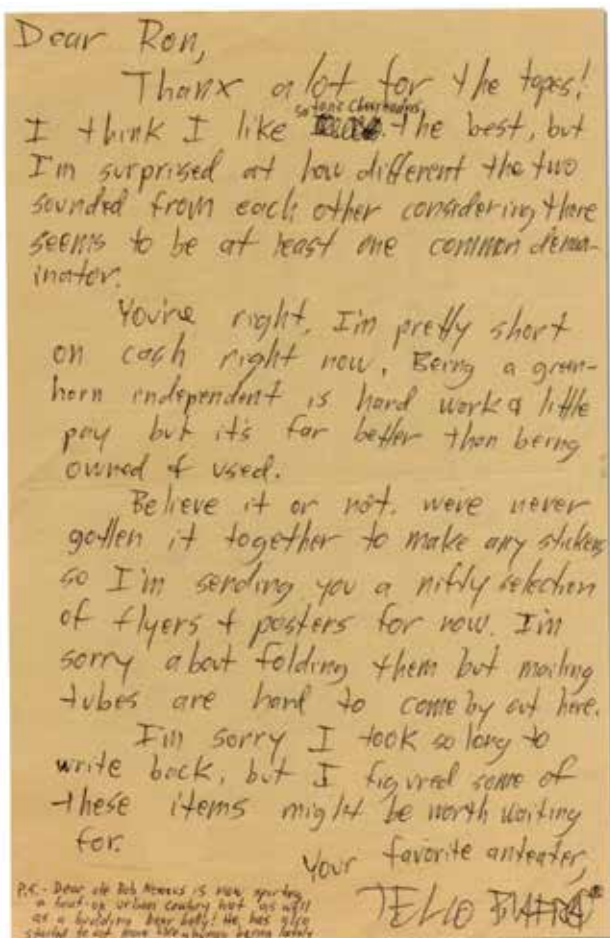 Dear Ron,
Thanx a lot for the tapes!
I think I like the best, but
I'm surprised at how different the two
sounded from each other considering there
seems to be at least one common demo-
inator.
You're right, I'm pretty short
on cash right now. Being a green-
horn independent is hard work & little
pay but it's far better than being
owned & used.
Believe it or not, we've never
gotten it together to make any stickers
so I'm sending you a nifty selection
of flyers & posters for now. I'm
sorry about folding them but mailing
tubes are hard to come by out here.
I'm sorry I took so long to
write back, but I figured some of
these items might be worth waiting
for.
Your favorite anteater,
JELLO
P.S. - Dear ole Bob is now sporting
a urban cowboy hat as well
as a budding beer belly! He has also
started to act more like a human being lately